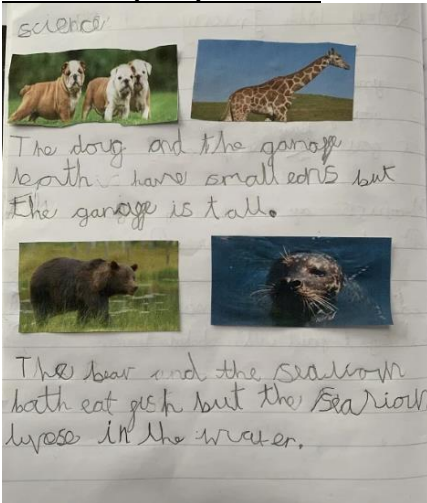 science
The doug and the garage
beoth have small ears but
the garage is tall.
The bear and the sealown
bath eat gish but the Searioun
lyose in the water.